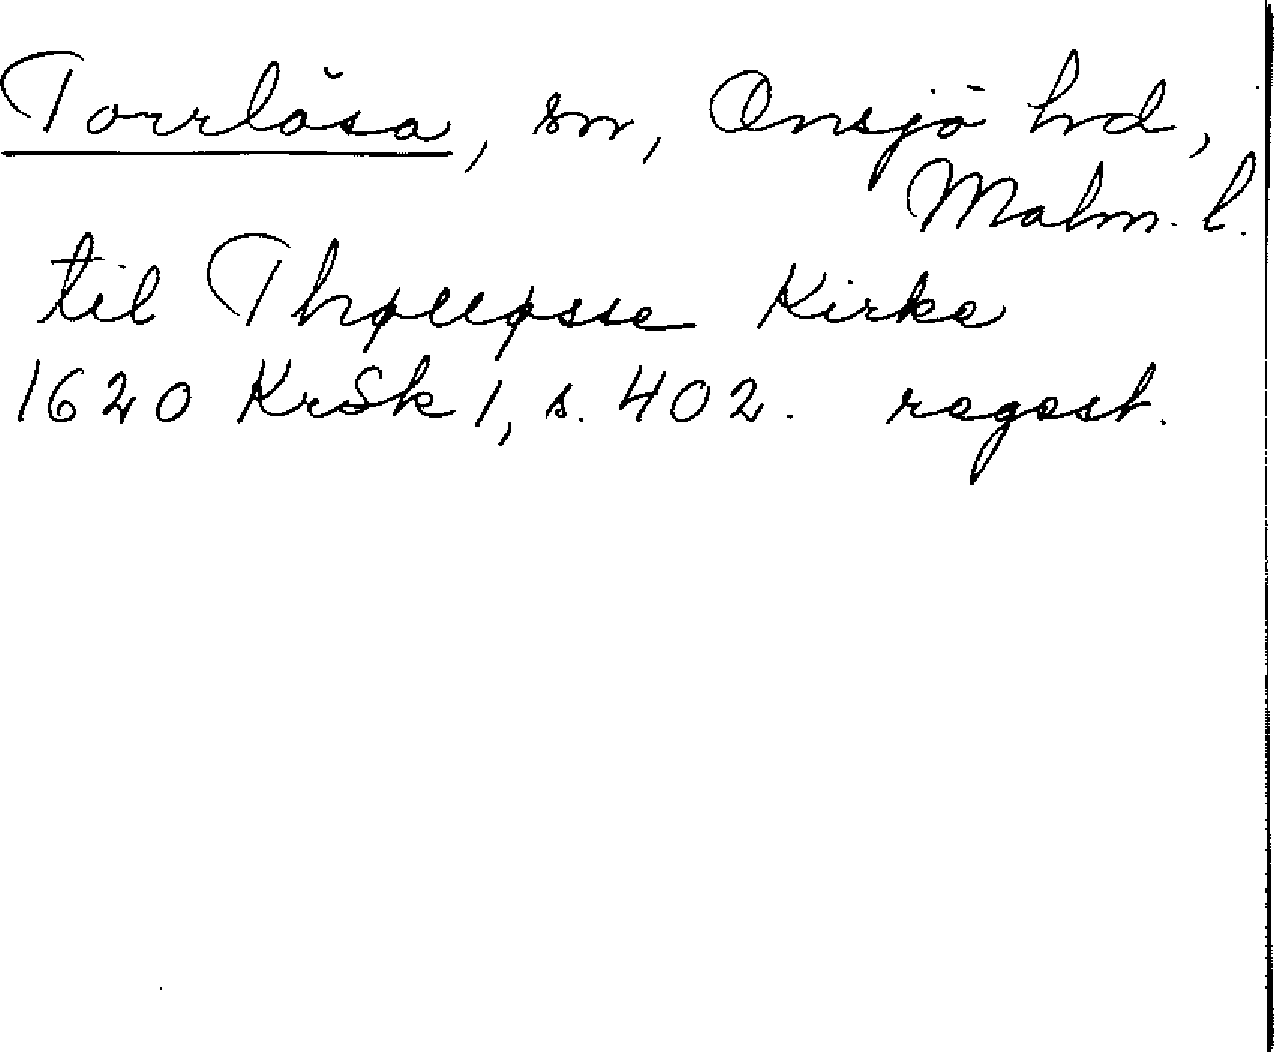 Torrlösa, sn, Onsjö hd,
Malm. l.
til Thølløsse Kirke
1620 KrSk 1, s. 402. regest.